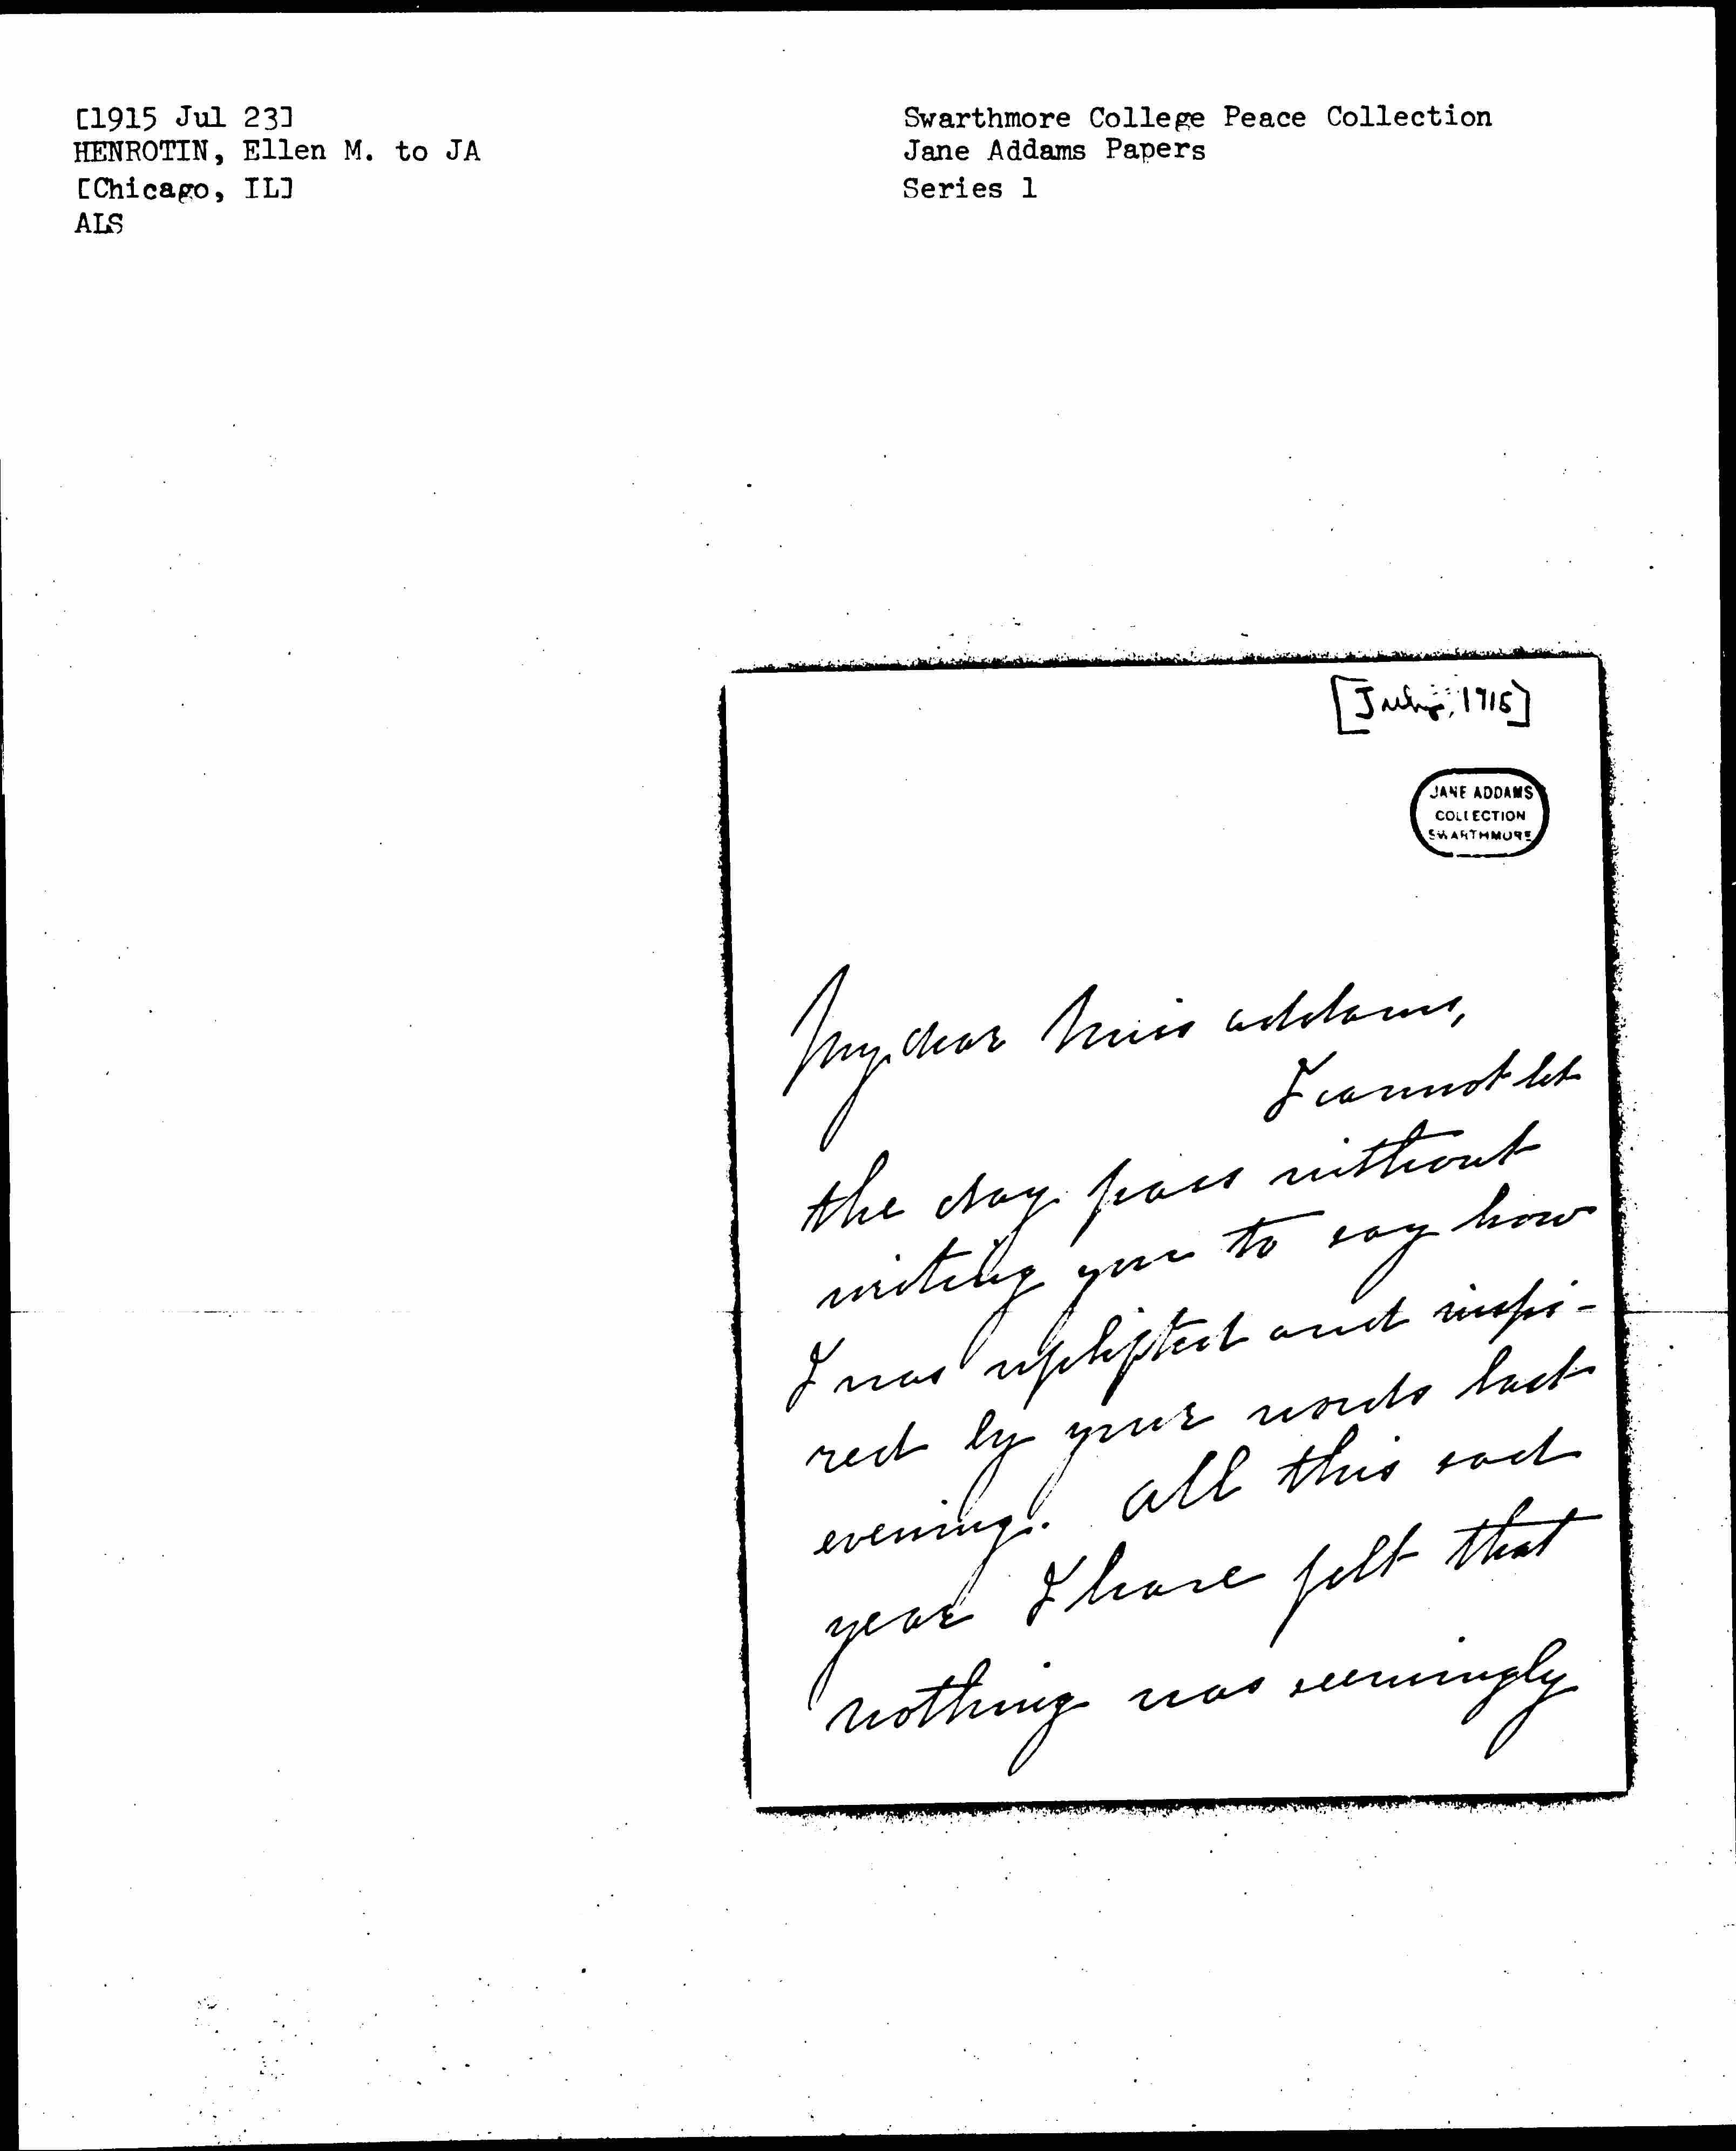 [1915 Jul 23]
HENROTIN, Ellen M. to JA
[Chicago, IL]
ALS
Swarthmore College Peace Collection
Jane Addams Papers
Series 1
[July, 1915]
JANE ADDAMS
COLLECTION
SWARTHMORE
My dear Miss Addams,
I cannot let
the day pass without
writing you to say how
I was uplifted and inspi-
red by your words last
evening. All this sad
year I have felt that
nothing was seemingly